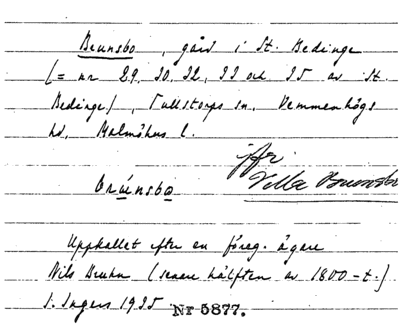 Brunsbo, gård i St. Bedinge
(= nr 29, 30, 32, 33 och 35 av St.
Bedinge), Tullstorps sn, Vemmenhögs
hd, Malmöhus l.
jfr
Villa Brunsbo
Uppkallet efter en föreg. ägare
Nils Bruhn (senare hälften av 1800-t.)
I. Ingers 1935 Nr 5877.